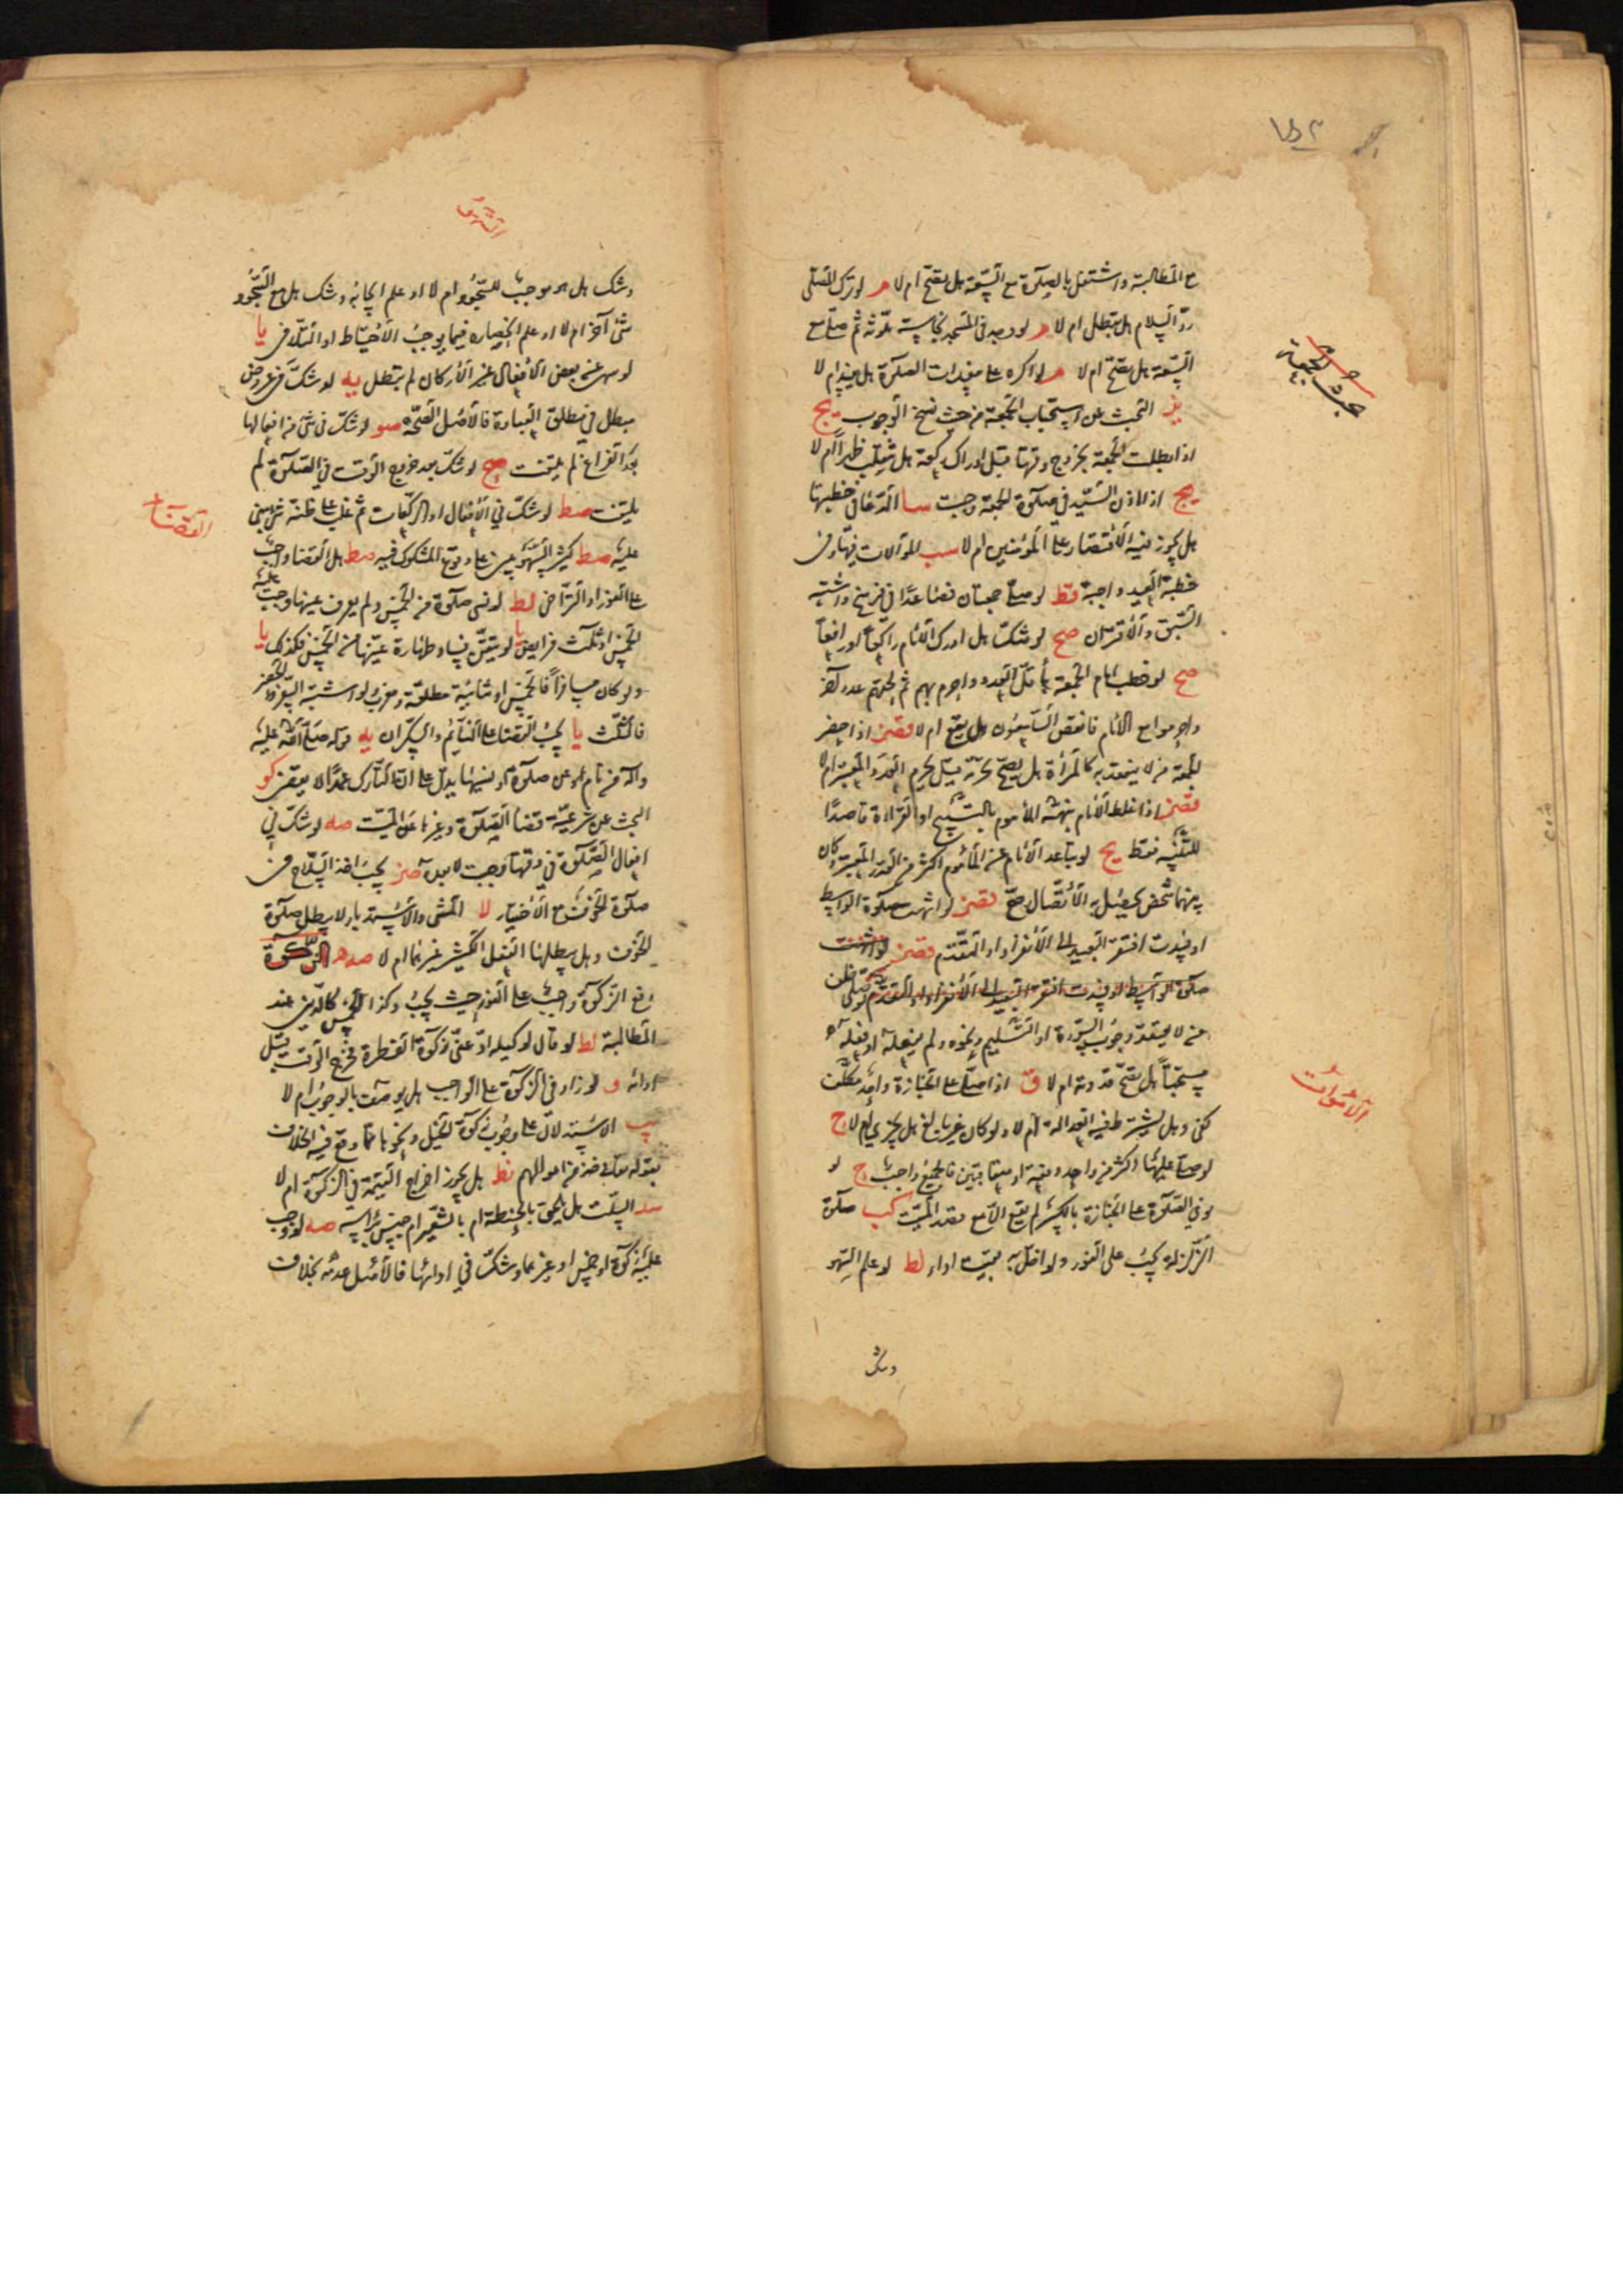 مع المطالبة واشتغل بالصلوة مع السعة هل تصح ام لا م لو ترك المصلى
رد السلام هل تبطل ام لا م لو وجد فى المسجد نجاسة ملوثة ثم صلى مع
السعة هل تصح ام لا م لو اكره على مفسدات الصلوة هل يفسد ام لا
البحث عن استحباب الجمعة من حيث نسخ الوجوب يح
بحث الجمعة
اذا بطلت الجمعة بخروج وقتها قبل ادراك ركعة هل تنقلب ظهراً ام لا
يح اذا اذن السيد فى صلوة الجمعة وجبت سا الدعا فى خطبتها
هل يجوز فيه الاقتصار على المؤمنين ام لا سب الموالات فيها وفى
خطبة العيد واجبة قط لو صلى جمعتان فصاعدًا فى فرسخ واشتبه
السبق والاقتران صح لو شك هل ادرك الامام راكعاً او رافعاً
صح لو خطب امام الجمعة باقل العدد واحرم بهم ثم لحقهم عدد آخر
واحرموا مع الامام فانفض السامعون هل تقع ام لا قصز اذا حضر
الجمعة من لا ينعقد به كالمرأة هل يصح تحرمه قبل تحرم العدد المعتبر ام لا
قصز اذا غلط الامام بنهه المأموم بالتسبيح او القراءة قاصدًا
للتنبيه فقط يح لو تباعد الامام عن المأموم اكثر من القدر المعتبر وكان
بينهما شخص يحصل به الاتصال صح قصز لو انتهت صلوة الواسط
او فسدت افتقر البعيد الى الانفراد او التقدم قصز لو انتهت
صلوة الواسط او فسدت افتقر البعيد الى الانفراد او التقدم لو صلى خلف
من لا يعتقد وجوب السورة او التسليم ونحوه ولم يفعله او فعله
مستحباً هل تصح قدوته ام لا ق اذا صلى على الجنازة واحد مكلف
كفى وهل يشترط فيه العدالة ام لا ولو كان غير بالغ هل يجزى ام لا ج
الاموات
لو صلى عليها اكثر من واحد دفعة او متعاقبين فالجميع واجب ج لو
نوى الصلوة على الجنازة بالكبر لم تقع الا مع قصد الميت كب صلوة
الزلزلة يجب على الفور ولو اخل به بقيت اداء لط لو علم السهو
وشك
السهو
وشك هل هو موجب للسجود ام لا او علم ايجابه وشك هل هو السجود
شئ آخر ام لا او علم انحصاره فيما يوجب الاحتياط او التلافى يا
لو سهى عن بعض الافعال غير الاركان لم تبطل يه لو شك فى عروض
مبطل فى مطلق العبادة فالاصل الصحة صو لو شك فى شئ من افعالها
بعد الفراغ لم يلتفت صح لو شك بعد خروج الوقت فى الصلوة لم
يلتفت صط لو شك فى الافعال او الركعات ثم غلب على ظنه شئ بنى
عليه صط كثير السهو يبنى على وقوع المشكوك فيه صط هل القضا واجب
القضاء
على الفور او التراخى لط لو نسى صلوة من الخمس ولم يعرف عينها وجب عليه
الخمس او ثلث فرايض يا لو تيقن فساد طهارة عينها من الخمس فكذلك يا
ولو كان مسافراً فالخمس او ثنائية مطلقة ومغرب ولو اشتبه السفر والحضر
فالثلث يا يجب القضا على النائم والسكران يه قوله صلى الله عليه
وآله من نام عن صلوة او نسيها يدل على ان التارك عمدًا لا يقضى كو
البحث عن شرعية قضا الصلوة وغيرها عن الميت صه لو شك فى
افعال الصلوة فى وقتها وجبت لا بعده صز يجب اخذ السلاح فى
صلوة الخوف مع الاختيار لا المشى والاستدبار لا يبطل صلوة
الخوف وهل يبطلها الفعل الكثير غيرهما ام لا صه الزكوة
دفع الزكوة واجب على الفور حيث يجب وكذا الخمس كالدين عند
المطالبة لط لو قال لوكيله ادّ عنى زكوة الفطرة فخرج الوقت قبل
ادائه و لو زاد فى الزكوة على الواجب هل يوصف بالوجوب ام لا
الاستدلال على وجوب زكوة الخيل ونحوها مما وقع فيه الخلاف
بقوله تعالى خذ من اموالهم نط هل يجوز اخراج القيمة فى الزكوة ام لا
سد السلت هل يلحق بالحنطة ام بالشعير ام جنس برأسه صه لو وجب
عليه زكوة او خمس او غيرهما وشك فى ادائها فالاصل عدمه بخلاف